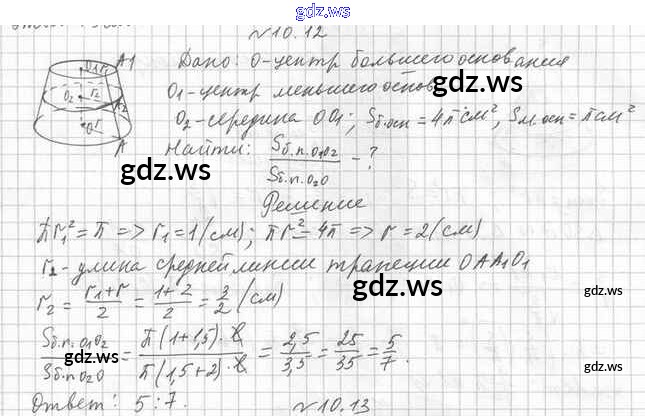 gdz.ws
№10.12
Дано: O-центр большего основания
O₁-центр меньшего основ
gdz.ws
O₂-середина OO₁; Sб.осн = 4π см², Sм.осн = π см²
Найти: Sб.п.O₁O₂ / Sб.п.O₂O - ?
A1
O₁ r₁
O₂ r₂
A₂
O r
A
gdz.ws
Решение
πr₁² = π => r₁ = 1 (см); πr² = 4π => r = 2 (см)
r₂ - длина средней линии трапеции OAA₁O₁
r₂ = (r₁ + r)/2 = (1 + 2)/2 = 3/2 (см)
gdz.ws
gdz.ws
Sб.п.O₁O₂ / Sб.п.O₂O = π(1 + 1,5)·ℓ / π(1,5 + 2)·ℓ = 2,5/3,5 = 25/35 = 5/7.
gdz.ws
gdz.ws
Ответ: 5:7.
№10.13